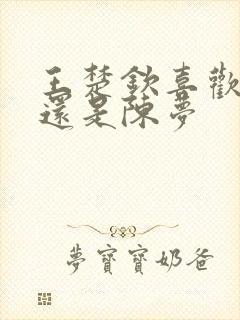 王楚欽喜歡
還是陳夢
夢寶寶奶爸